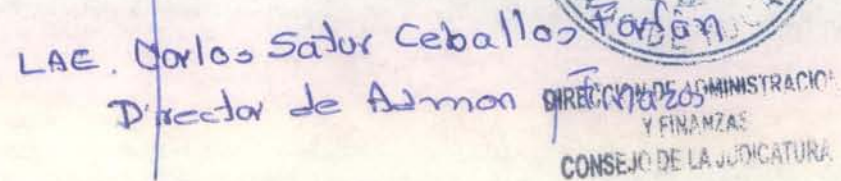 LAE. Carlos Satur Ceballos Farfán
Director de Admon y Finanzas
DIRECCION DE ADMINISTRACION
Y FINANZAS
CONSEJO DE LA JUDICATURA